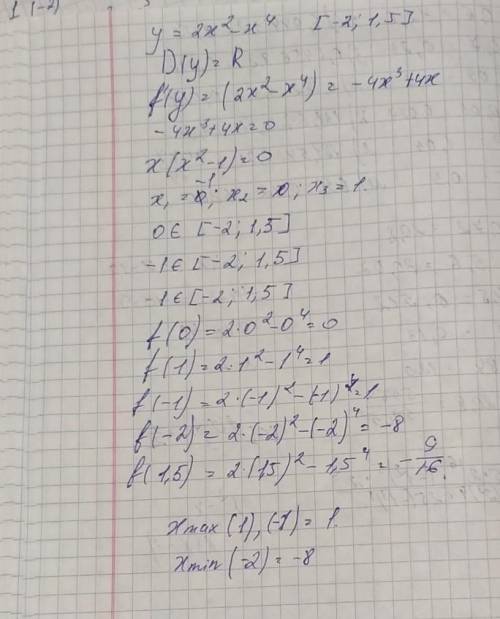 I (-2)
y = 2x² - x⁴ [-2; 1,5]
D(y) = R
f'(y) = (2x² - x⁴) = -4x³+4x
-4x³+4x=0
x(x²-1)=0
x₁ = -1; x₂ = 0; x₃ = 1.
0 ∈ [-2; 1,5]
-1 ∈ [-2; 1,5]
-1 ∈ [-2; 1,5]
f(0) = 2·0² - 0⁴ = 0
f(1) = 2·1² - 1⁴ = 1
f(-1) = 2·(-1)² - (-1)⁴ = 1
f(-2) = 2·(-2)² - (-2)⁴ = -8
f(1,5) = 2·(1,5)² - 1,5⁴ = - 9/16.
xmax (1), (-1) = 1.
xmin (-2) = -8